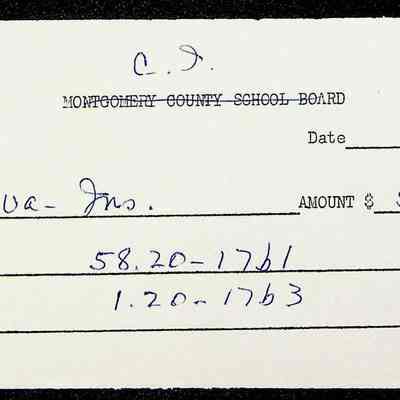 C. I.
MONTGOMERY COUNTY SCHOOL BOARD
Date
va- Ins. AMOUNT $
58.20-1761
1.20-1763